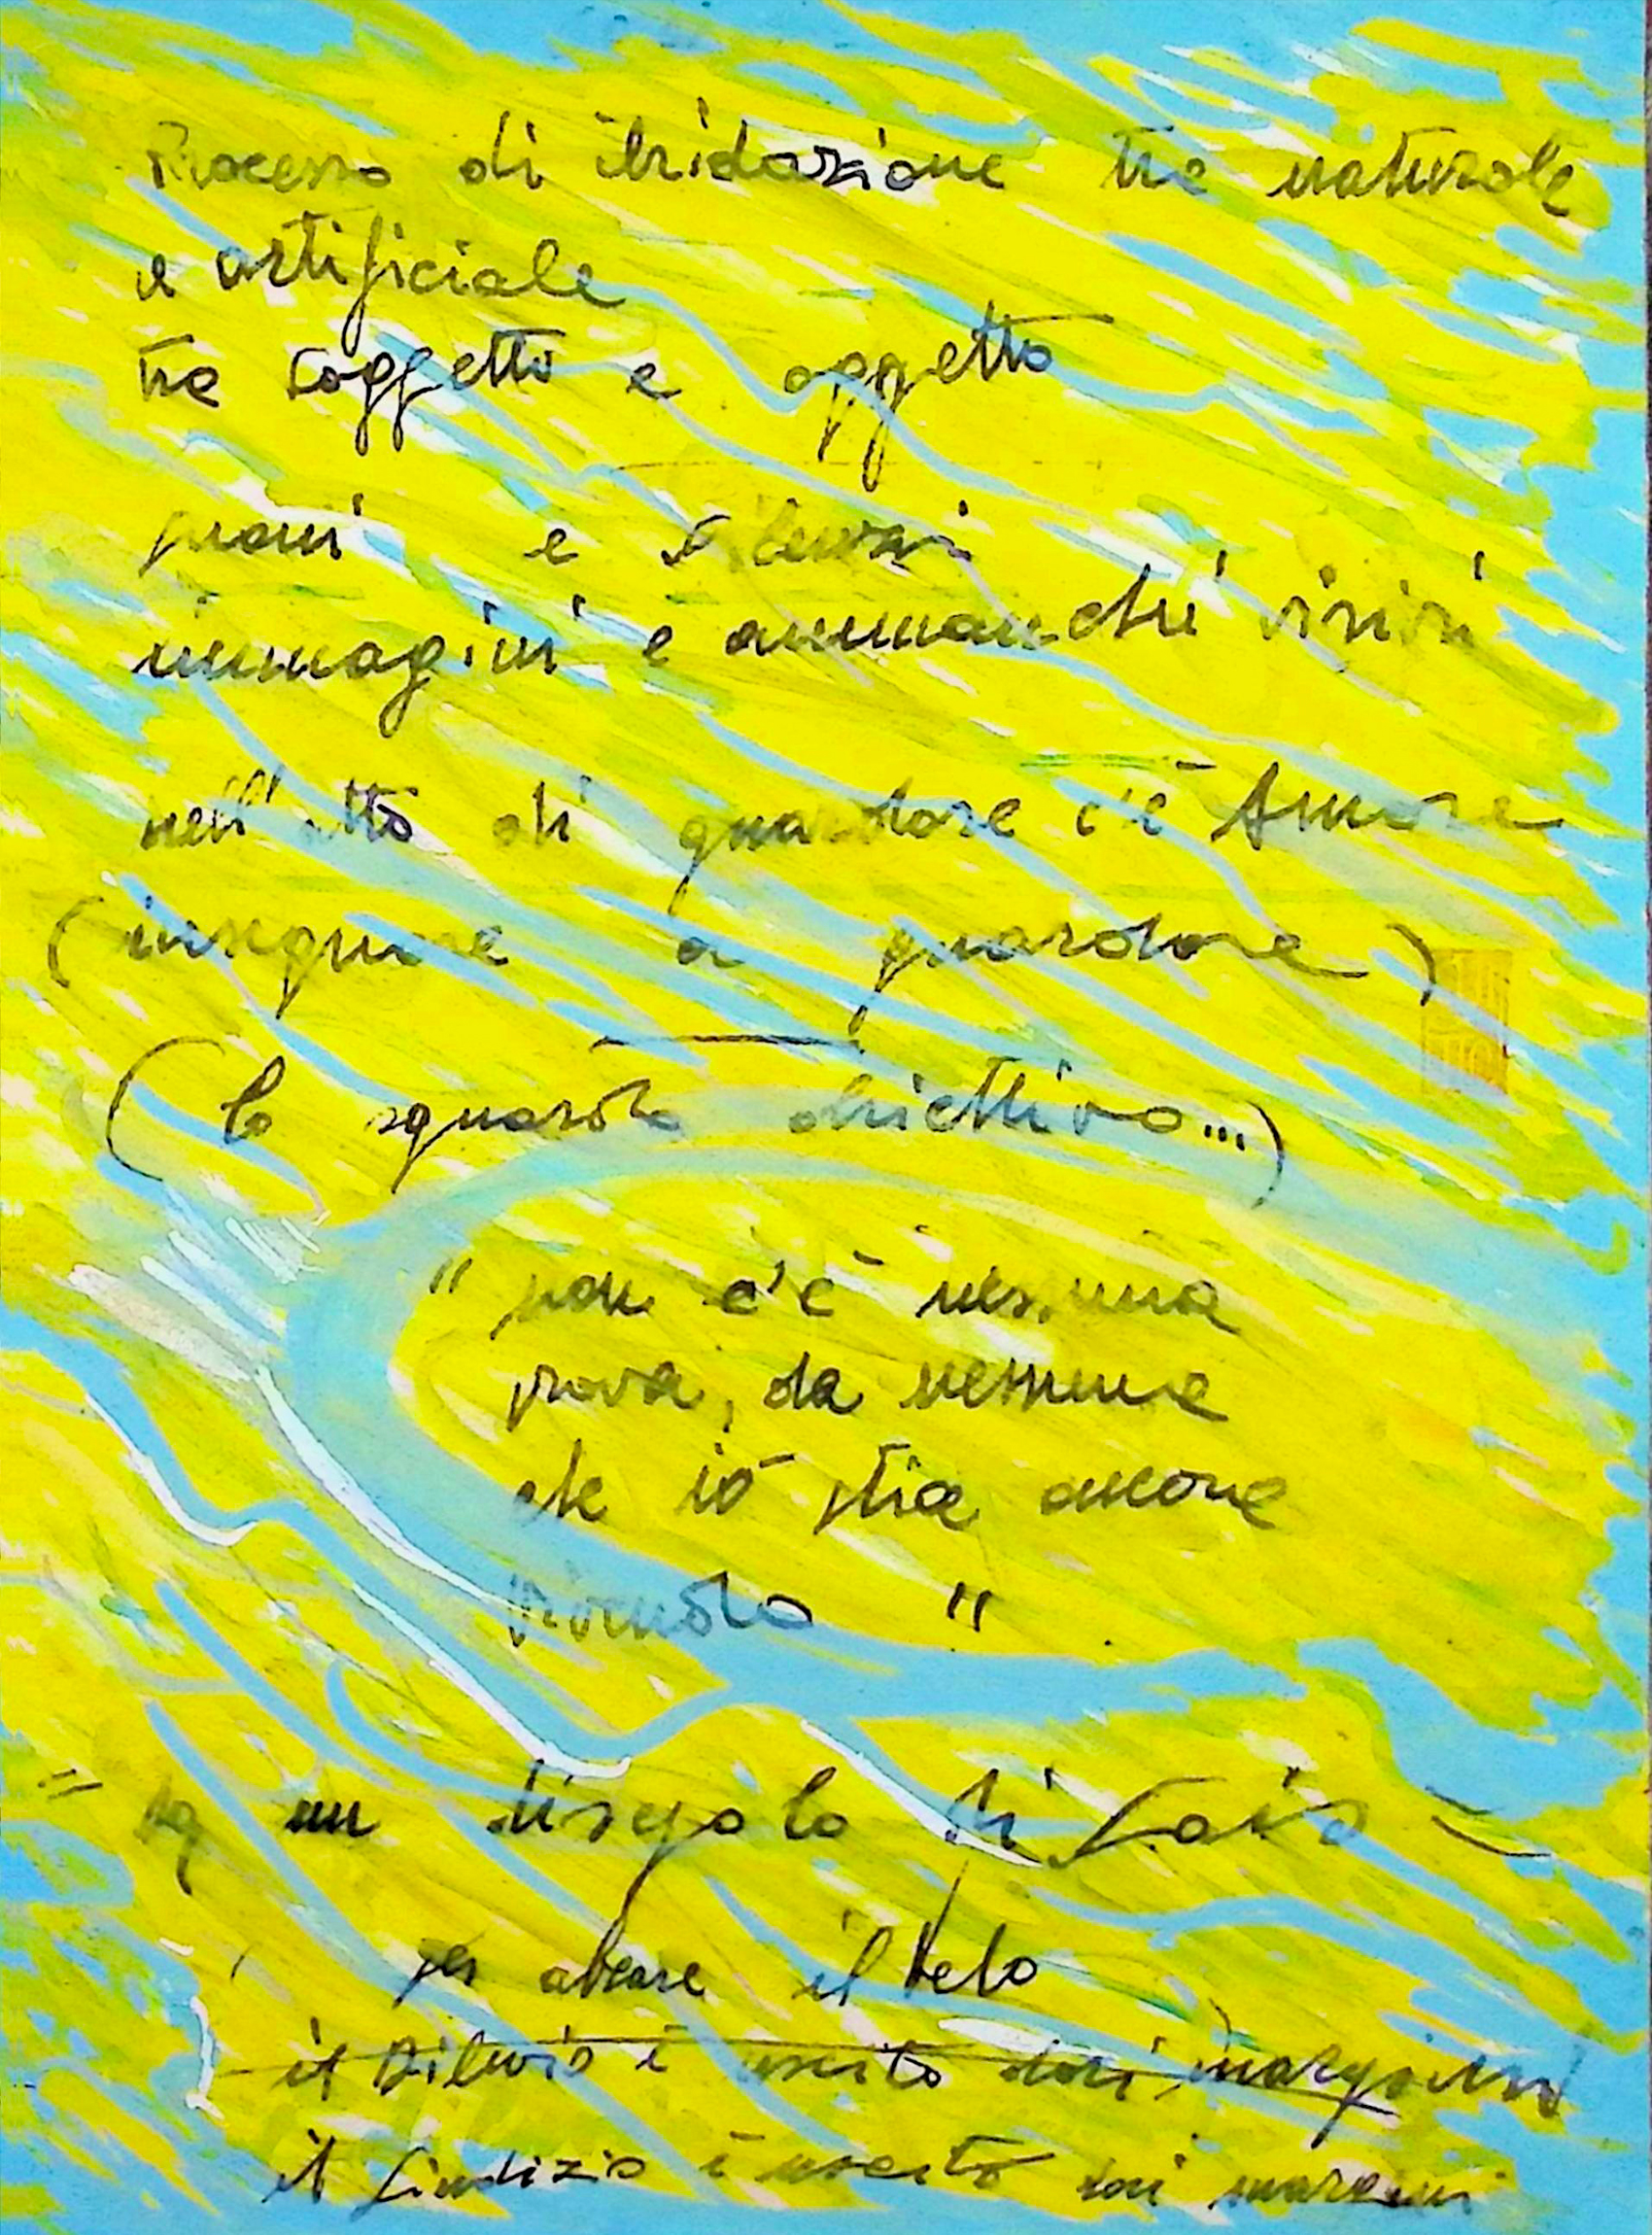 Processo di ibridazione tra naturale
e artificiale
tra soggetto e oggetto
e silenzi
immagini e ammanchi visivi
nell'atto di guardare c'è Amore
(insegnare a guardare)
(lo sguardo obiettivo...)
"non c'è nessuna
prova, da nessuna
che io stia ancora
vivendo"
un discepolo di
per alzare il Velo
il Diluvio è uscito dai margini
il Giudizio è uscito dai margini